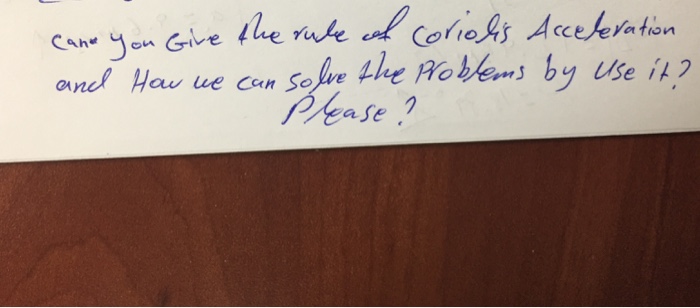 Can you Give the rule of Coriolis Acceleration
and How we can solve the Problems by Use it?
Please?